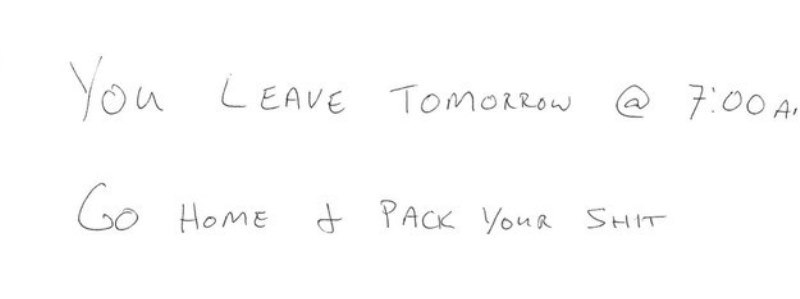 You LEAVE TOMORROW @ 7:00 A
Go HOME & PACK YOUR SHIT